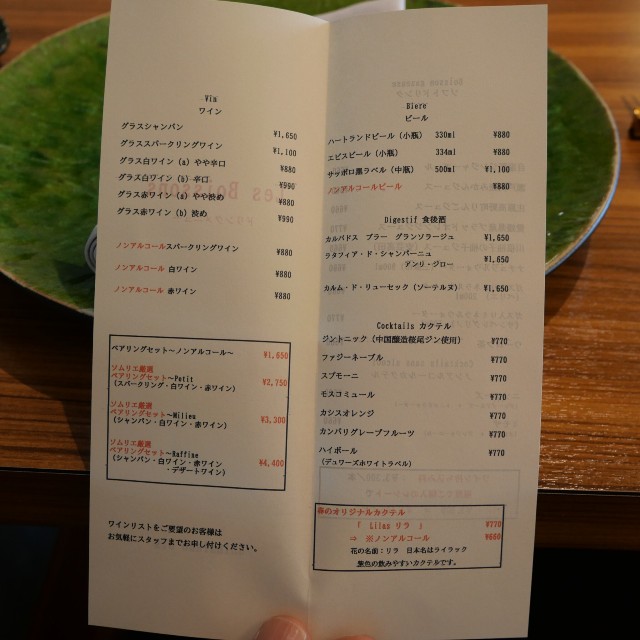 Vin
ワイン
グラスシャンパン ¥1,650
グラススパークリングワイン ¥1,100
グラス白ワイン (a) やや辛口 ¥880
グラス白ワイン (b) 辛口 ¥990
グラス赤ワイン (a) やや渋め ¥880
グラス赤ワイン (b) 渋め ¥990
ノンアルコールスパークリングワイン ¥880
ノンアルコール 白ワイン ¥880
ノンアルコール 赤ワイン ¥880
ペアリングセット～ノンアルコール～ ¥1,650
ソムリエ厳選
ペアリングセット～Petit ¥2,750
(スパークリング・白ワイン・赤ワイン)
ソムリエ厳選
ペアリングセット～Milieu ¥3,300
(シャンパン・白ワイン・赤ワイン)
ソムリエ厳選
ペアリングセット～Raffine ¥4,400
(シャンパン・白ワイン・赤ワイン
・デザートワイン)
ワインリストをご要望のお客様は
お気軽にスタッフまでお申し付けください。
Biere
ビール
ハートランドビール (小瓶) 330ml ¥880
ヱビスビール (小瓶) 334ml ¥880
サッポロ黒ラベル (中瓶) 500ml ¥1,100
ノンアルコールビール ¥880
Digestif 食後酒
カルバドス ブラー グランソラージュ ¥1,650
ラタフィア・ド・シャンパーニュ ¥1,650
アンリ・ジロー
カルム・ド・リューセック (ソーテルヌ) ¥1,650
Cocktails カクテル
ジントニック (中国醸造桜尾ジン使用) ¥770
ファジーネーブル ¥770
スプモーニ ¥770
モスコミュール ¥770
カシスオレンジ ¥770
カンパリグレープフルーツ ¥770
ハイボール ¥770
(デュワーズホワイトラベル)
春のオリジナルカクテル
「 Lilas リラ 」 ¥770
⇨ ※ノンアルコール ¥660
花の名前：リラ 日本名はライラック
紫色の飲みやすいカクテルです。